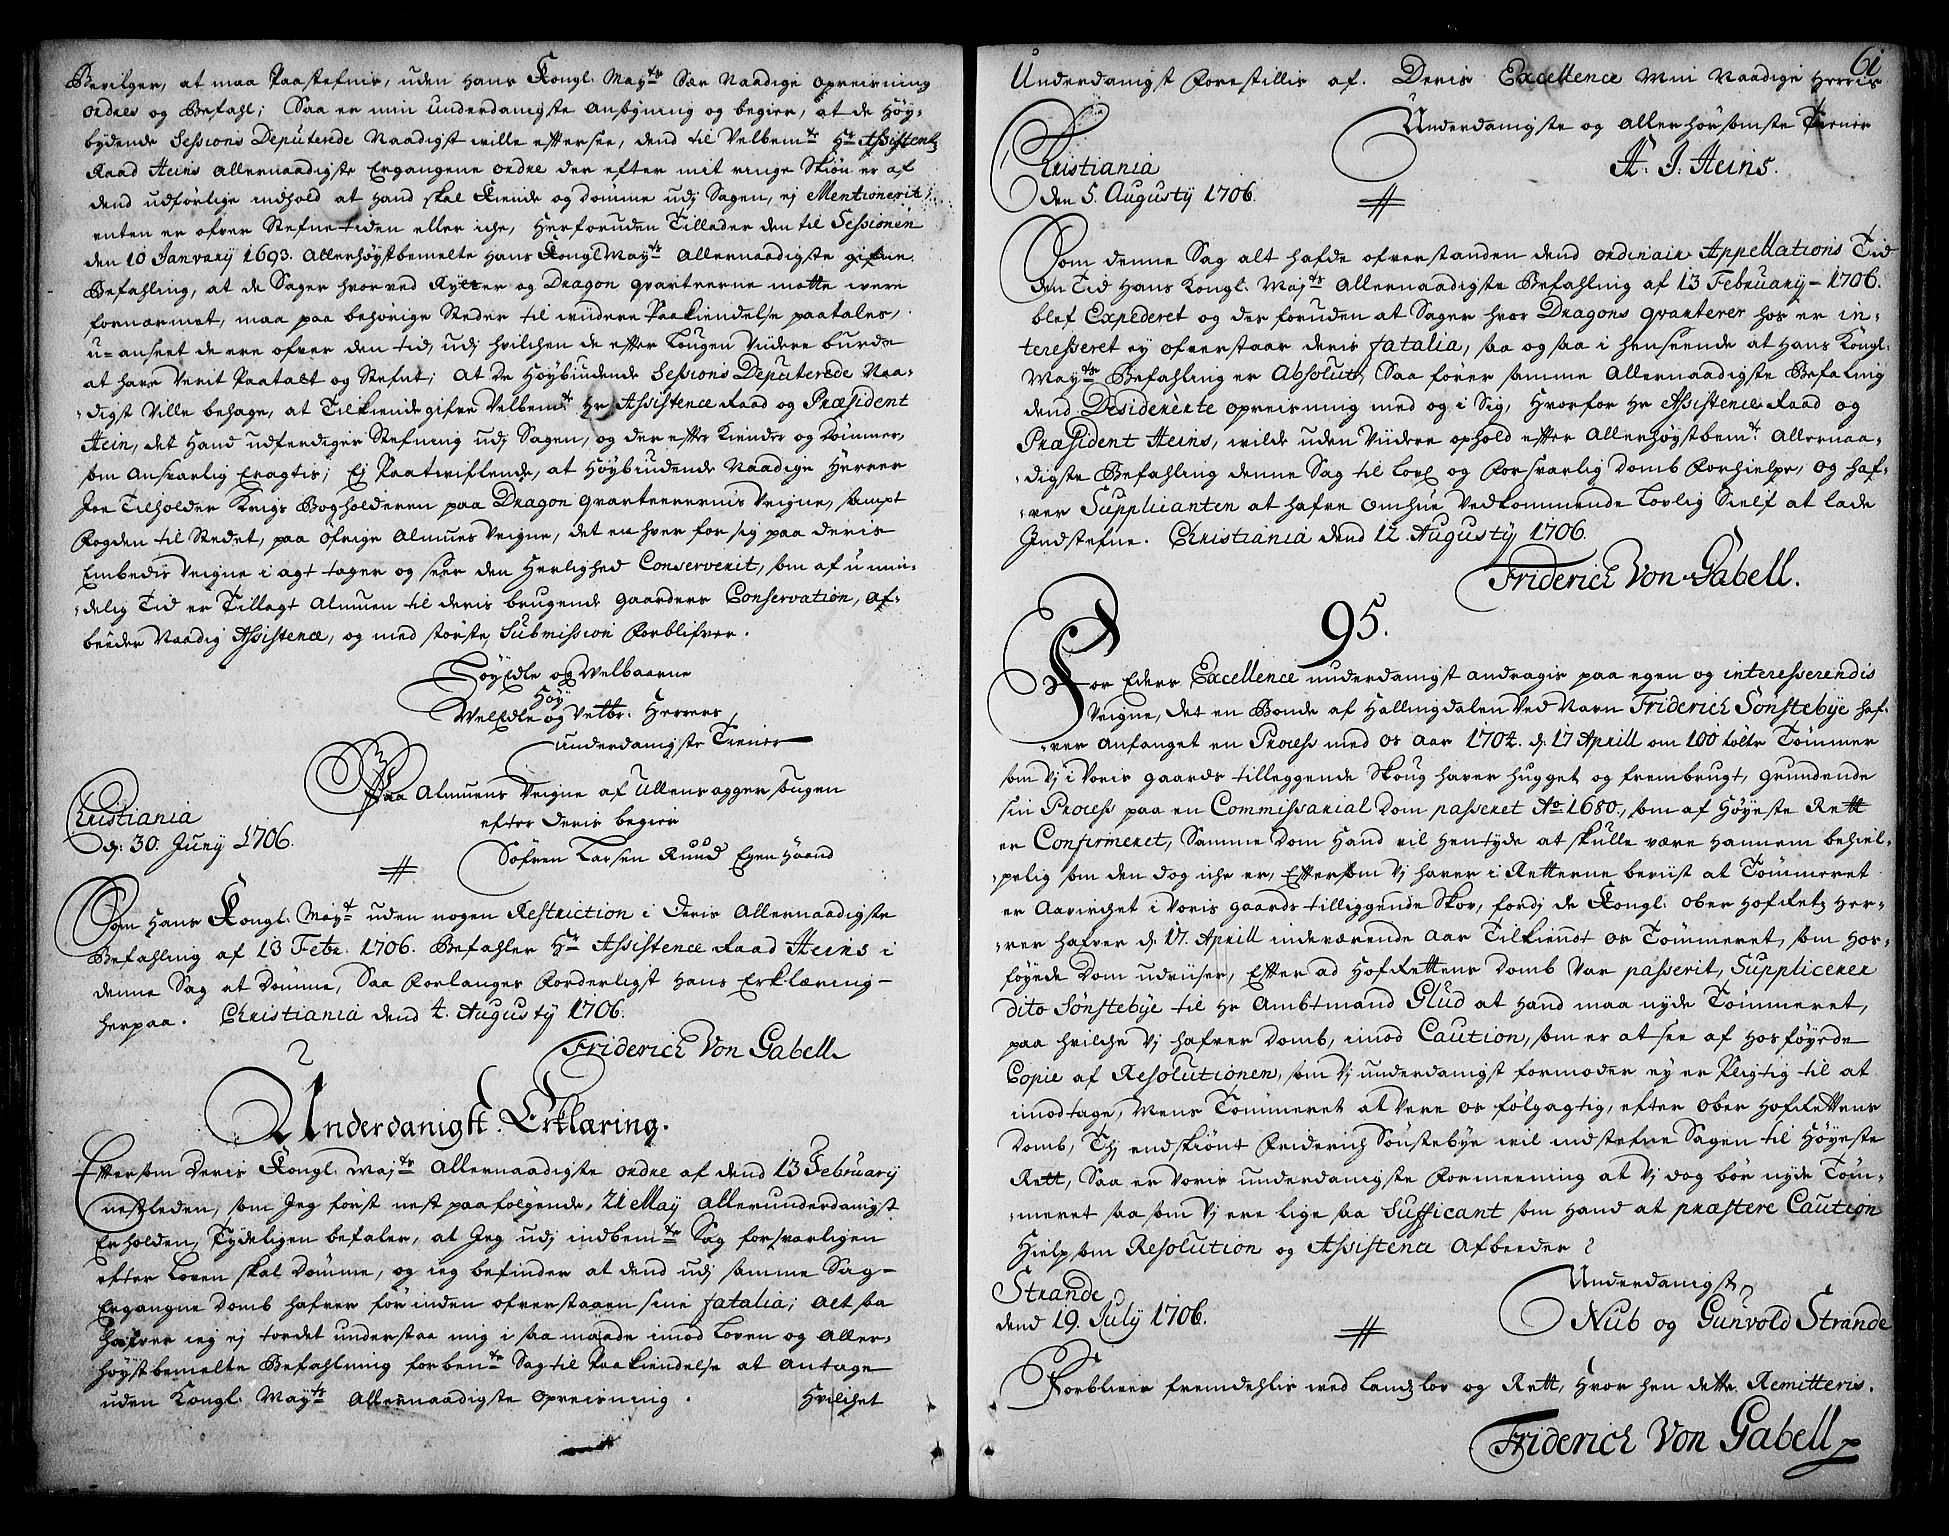 Bevilger, at maa Paastefnis, uden Hans Kongl: May:ts Sær Naadige opreisning
ordres og Befahl; Saa er min underdanigste ansøgning og begier, at de Høy-
bydende Sessions Deputerede Naadigst wille effterseе, dend til Velbem:te Hr Assistentz
Raad Heins allernaadigste Ergangene ordre der efter mit ringe Skiøn er af
dend udførlige indhold at Hand skal Kiende og dømme udj Sagen, ej Mentionerit,
enten er ofver Stefnetiden eller iche, Herforuden Tillader den til Sessionen
den 10 January 1693. allerhøystbemelte Hans Kongl May:ts Allernaadigste gifne
Befahling, at de Sager hvorved Rytter og Dragon qvarteerne motte were
fornærmet, maa paa behørige Steder til widere Paakiendelse paatales,
u-anseet de ere ofver den tid, udj hvilchen de effter Lougen Viidere burde
at have Verit Paatalt og Stefnt; At de Høybiudende Sessions Deputerede Naa-
digst Ville behage, at Tilkiendegifve Velbem:te Hr Assistence Raad og Præsident
Hein, det Hand udferdiger Stefning udj Sagen, og der effter Kiender og Dømmer,
som Ansvarlig Eragtis; Ej Paatwiflende, at Høybiudende Naadige Herrer
Joe Tilholder Krigs Bogholderen paa Dragon qvarteerernis Veigne, sampt
Fogden til Stedet, paa øfrige Almues Veigne, det en hver for sig paa deris
Embedis Veigne i agt tager og seer den Herlighed Conserverit, som af umin-
delig Tid er Tillagt Almuen til deris brugende gaarders Conservation, Af-
beeder Naadig Assistence, og med største Submission Forblifver.
HøyEdle og Velbaarne
Høy
WelEdle og Velbr: Herrers
underdanigste Tienner
Paa Almuens Veigne af Ullensaggersougen
efter deris begier
Christiania
d: 30. Juny 1706.
Søfren Larsen Ruud Egen Haand
Som Hans Kongl: May:t uden nogen Restriction i Deris Allernaadigste
Befahling af 13 Febr. 1706. Befahler Hr Assistence Raad Heins i
denne Sag at Dømme, Saa Forlanges Forderligst Hans Erklæring
herpaa. Christiania dend 4. Augusty 1706.
Friderich Von Gabell
Underdanigst Erklæring.
Effter som Deris Kongl: May:ts Allernaadigste ordre af dend 13 February
nestleden, som Jeg først nest paafølgende, 21 May Allerunderdanigst
Erholden, Tydeligen befaler, at Jeg udj indbem:te Sag forsvarligen
efter Loven skal Dømme, og ieg befinder at dend udj samme Sag
Ergangne Domb hafver før inden ofverstaaen sine fatalia; Alt saa
Hafver ieg ej tordet understaa mig i saa maade imod Loven og Aller-
høystbemelte Befahling forben:te Sag til Paakiendelse at Antage
uden Kongl: May:ts Allernaadigste opreisning.
Hvilchet
61
Underdanigst Forestillis af. Deris Excellence Min Naadige Herris
Underdanigste og allerhørsomste Tienner
A. J. Heins.
Christiania
den 5. Augusty 1706.
Som denne Sag alt hafde ofverstanden dend ordinair Appellations Tid
den Tid Hans Kongl: May:ts Allernaadigste Befahling af 13 February 1706.
blef Expederet og der foruden at Sager hvor Dragons qvarterer hos er in-
teresseret ey ofverstaar deris fatalia, saa og saa i henseende at Hans Kongl:
May:ts Befahling er Absolut, Saa fører samme Allernaadigste Befaling
dend Desidererte opreisning med og i Sig, Hvorfor Hr Assistence Raad og
Præsident Heins, wilde uden Viidere ophold effter Allerhøystbem:te Allernaa-
digste Befahling denne Sag til Lovl: og Forsvarlig Domb Forhielpe, og haf-
ver Supplicanten at hafve omhue Vedkommende Lovlig Sielf at lade
Indstefne. Christiania dend 12 Augusty 1706.
Friderich Von Gabell.
95.
For Eders Excellence underdanigst andragis paa egen og interesserendis
Veigne, det en Bonde af Hallingdalen Ved Navn Friderich Sønstebye haf-
ver anfanget en Process med os Aar 1704. d: 17 Aprill om 100 tolte Tømmer
som Vj i Voris gaards tilleggende Skoug haver hugget og frembrugt, grundende
sin Process paa en Commissarial Dom passeret Ao 1680, som af Høyeste Rett
er Confirmeret, Samme Dom Hand vil Hentyde at skulle være Hannem behiel-
pelig som den dog iche er, Effter som Vj haver i Retterne beviist at Tømmeret
er Aavirchet i Voris gaards tilliggende Skov, fordj de Kongl: ober Hof Retz Her-
rer hafver d: 17. Aprill indeværende Aar Tilkiendt os Tømmeret, som Hos-
føyede Dom udviiser, Effter ad HofRettens Domb Var passerit, Supplicerer
dito Sønstebye til Hr Ambtmand Glud at Hand maa nyde Tømmeret,
paa hvilche Vj hafver Domb, imod Caution, som er at see af Hosføyede
Copie af Resolutionen, som Vj underdanigst formoder ey er Pligtig til at
imodtage, Mens Tømmeret at Vere os følgagtig, efter ober HofRettens
Domb, Thj endskiønt Friderich Sønstebye wil indstefne Sagen til Høyeste
Rett, Saa er Voris underdanigste Formeening at Vj dog bør nyde Tøm-
meret saa som Vj ere lige saa Sufficant som Hand at præstere Caution
Hielpsom Resolution og Assistence Afbeeder
Underdanigst
Strande
dend 19. July 1706.
Nub og Gunvold Strande
Forblivee fremdehlis ved Landzlov og Rett, Hvor hen dette Remitteris.
Friderich Von Gabell